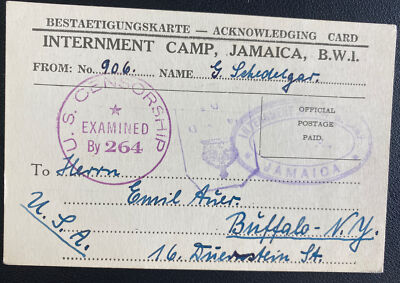 BESTAETIGUNGSKARTE — ACKNOWLEDGING CARD
INTERNMENT CAMP, JAMAICA, B.W.I.
FROM: No. 906. NAME G. Schedelgar.
U.S. CENSORSHIP
EXAMINED
By 264
OFFICIAL
POSTAGE
PAID.
INTERNMENT
JAMAICA
To Herrn
Emil Auer.
Buffalo - N.Y.
U.S.A.
16. Duerstein St.